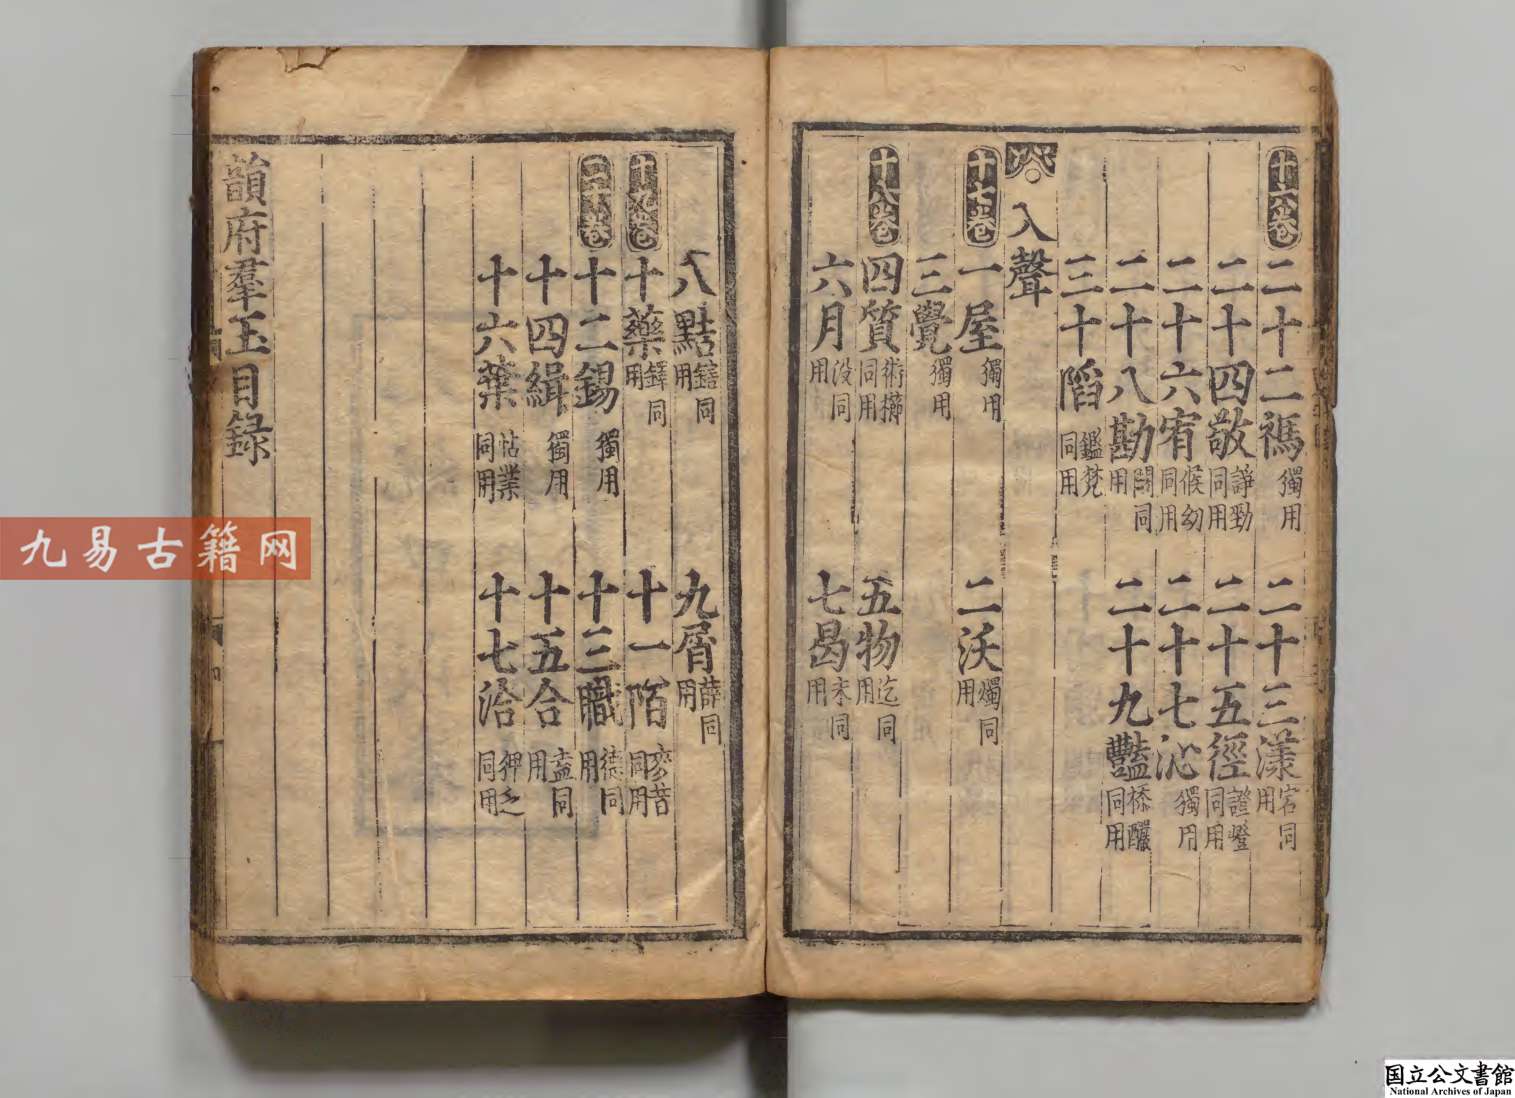 十六卷
二十二禡 獨用 二十三漾 宕同用
二十四敬 諍勁同用 二十五徑 證嶝同用
二十六宥 候幼同用 二十七沁 獨用
二十八勘 闞同用 二十九豔 㮇釅同用
三十陷 鑑梵同用
入聲
十七卷
一屋 獨用 二沃 燭同用
三覺 獨用
十八卷
四質 術櫛同用 五物 迄同用
六月 没同用 七曷 末同用
八黠 鎋同用 九屑 薛同用
十九卷
十藥 鐸同用 十一陌 麥昔同用
二十卷
十二錫 獨用 十三職 德同用
十四緝 獨用 十五合 盍同用
十六葉 帖業同用 十七洽 狎乏同用
韻府羣玉目録
九易古籍网
国立公文書館
National Archives of Japan